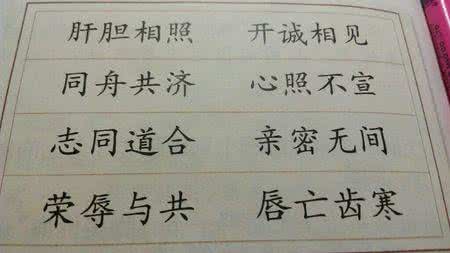 肝胆相照 开诚相见
同舟共济 心照不宣
志同道合 亲密无间
荣辱与共 唇亡齿寒